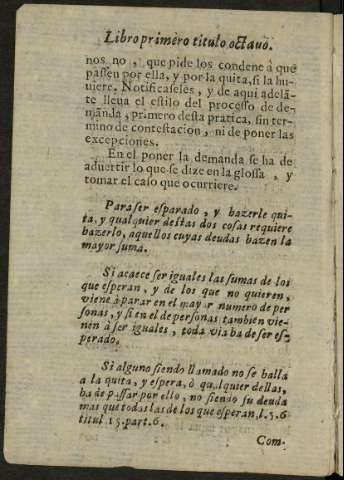 Libro primero titulo octauo.
nos no, que pide los condene à que
passen por ella, y por la quita, si la hu-
uiere. Notificaseles, y de aqui adelã-
te lleua el estilo del processo de de-
manda, primero desta pratica, sin ter-
mino de contestacion, ni de poner las
excepciones.
En el poner la demanda se ha de
aduertir lo que se dize en la glossa, y
tomar el caso que ocurriere.
Para ser esparado, y hazerle qui-
ta, y qualquier destas dos cosas requiere
hazerlo, aquellos cuyas deudas hazen la
mayor suma.
Si acaece ser iguales las sumas de los
que esperan, y de los que no quieren,
viene à parar en el mayar numero de per
sonas, y si en el de personas tambien vie-
nen à ser iguales, toda via ha de ser es-
perado.
Si alguno siendo llamado no se halla
a la quita, y espera, ò qualquier dellas,
ha de passar por ello, no siendo su deuda
mas que todas las de los que esperan, l. 5. 6
titul 15. part. 6.
Com-